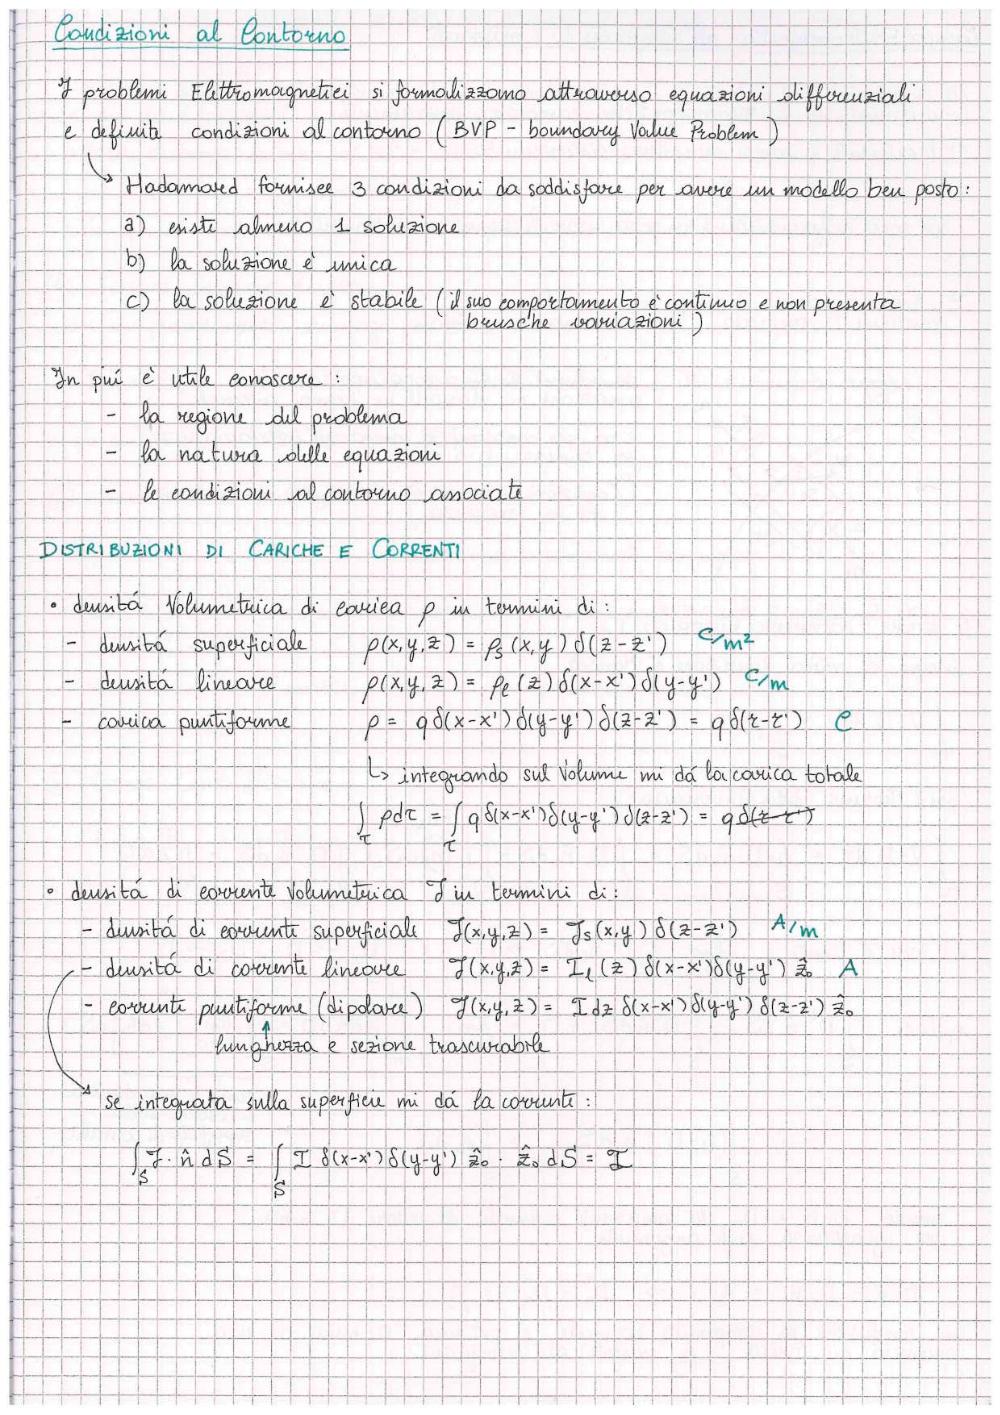 Condizioni al Contorno
I problemi Elettromagnetici si formalizzano attraverso equazioni differenziali
e definite condizioni al contorno (BVP - boundary Value Problem)
Hadamard fornisce 3 condizioni da soddisfare per avere un modello ben posto:
a) esiste almeno 1 soluzione
b) la soluzione é unica
c) la soluzione é stabile (il suo comportamento é continuo e non presenta
brusche variazioni)
In piú é utile conoscere:
- la regione del problema
- la natura delle equazioni
- le condizioni al contorno associate
DISTRIBUZIONI DI CARICHE E CORRENTI
• densitá Volumetrica di carica ρ in termini di:
- densitá superficiale ρ(x,y,z) = ρs(x,y) δ(z-z') C/m²
- densitá lineare ρ(x,y,z) = ρe(z) δ(x-x') δ(y-y') C/m
- carica puntiforme ρ = q δ(x-x') δ(y-y') δ(z-z') = q δ(r-r') C
↳ integrando sul Volume mi dá la carica totale
∫τ ρdτ = ∫τ q δ(x-x') δ(y-y') δ(z-z') = q δ(r-r')
• densitá di corrente Volumetrica J in termini di:
- densitá di corrente superficiale J(x,y,z) = Js(x,y) δ(z-z') A/m
- densitá di corrente lineare J(x,y,z) = Ie(z) δ(x-x') δ(y-y') ẑo A
- corrente puntiforme (dipolare) J(x,y,z) = I dz δ(x-x') δ(y-y') δ(z-z') ẑo
lunghezza e sezione trascurabile
se integrata sulla superficie mi dá la corrente:
∫S J · n̂ dS = ∫S I δ(x-x') δ(y-y') ẑo · ẑo dS = I